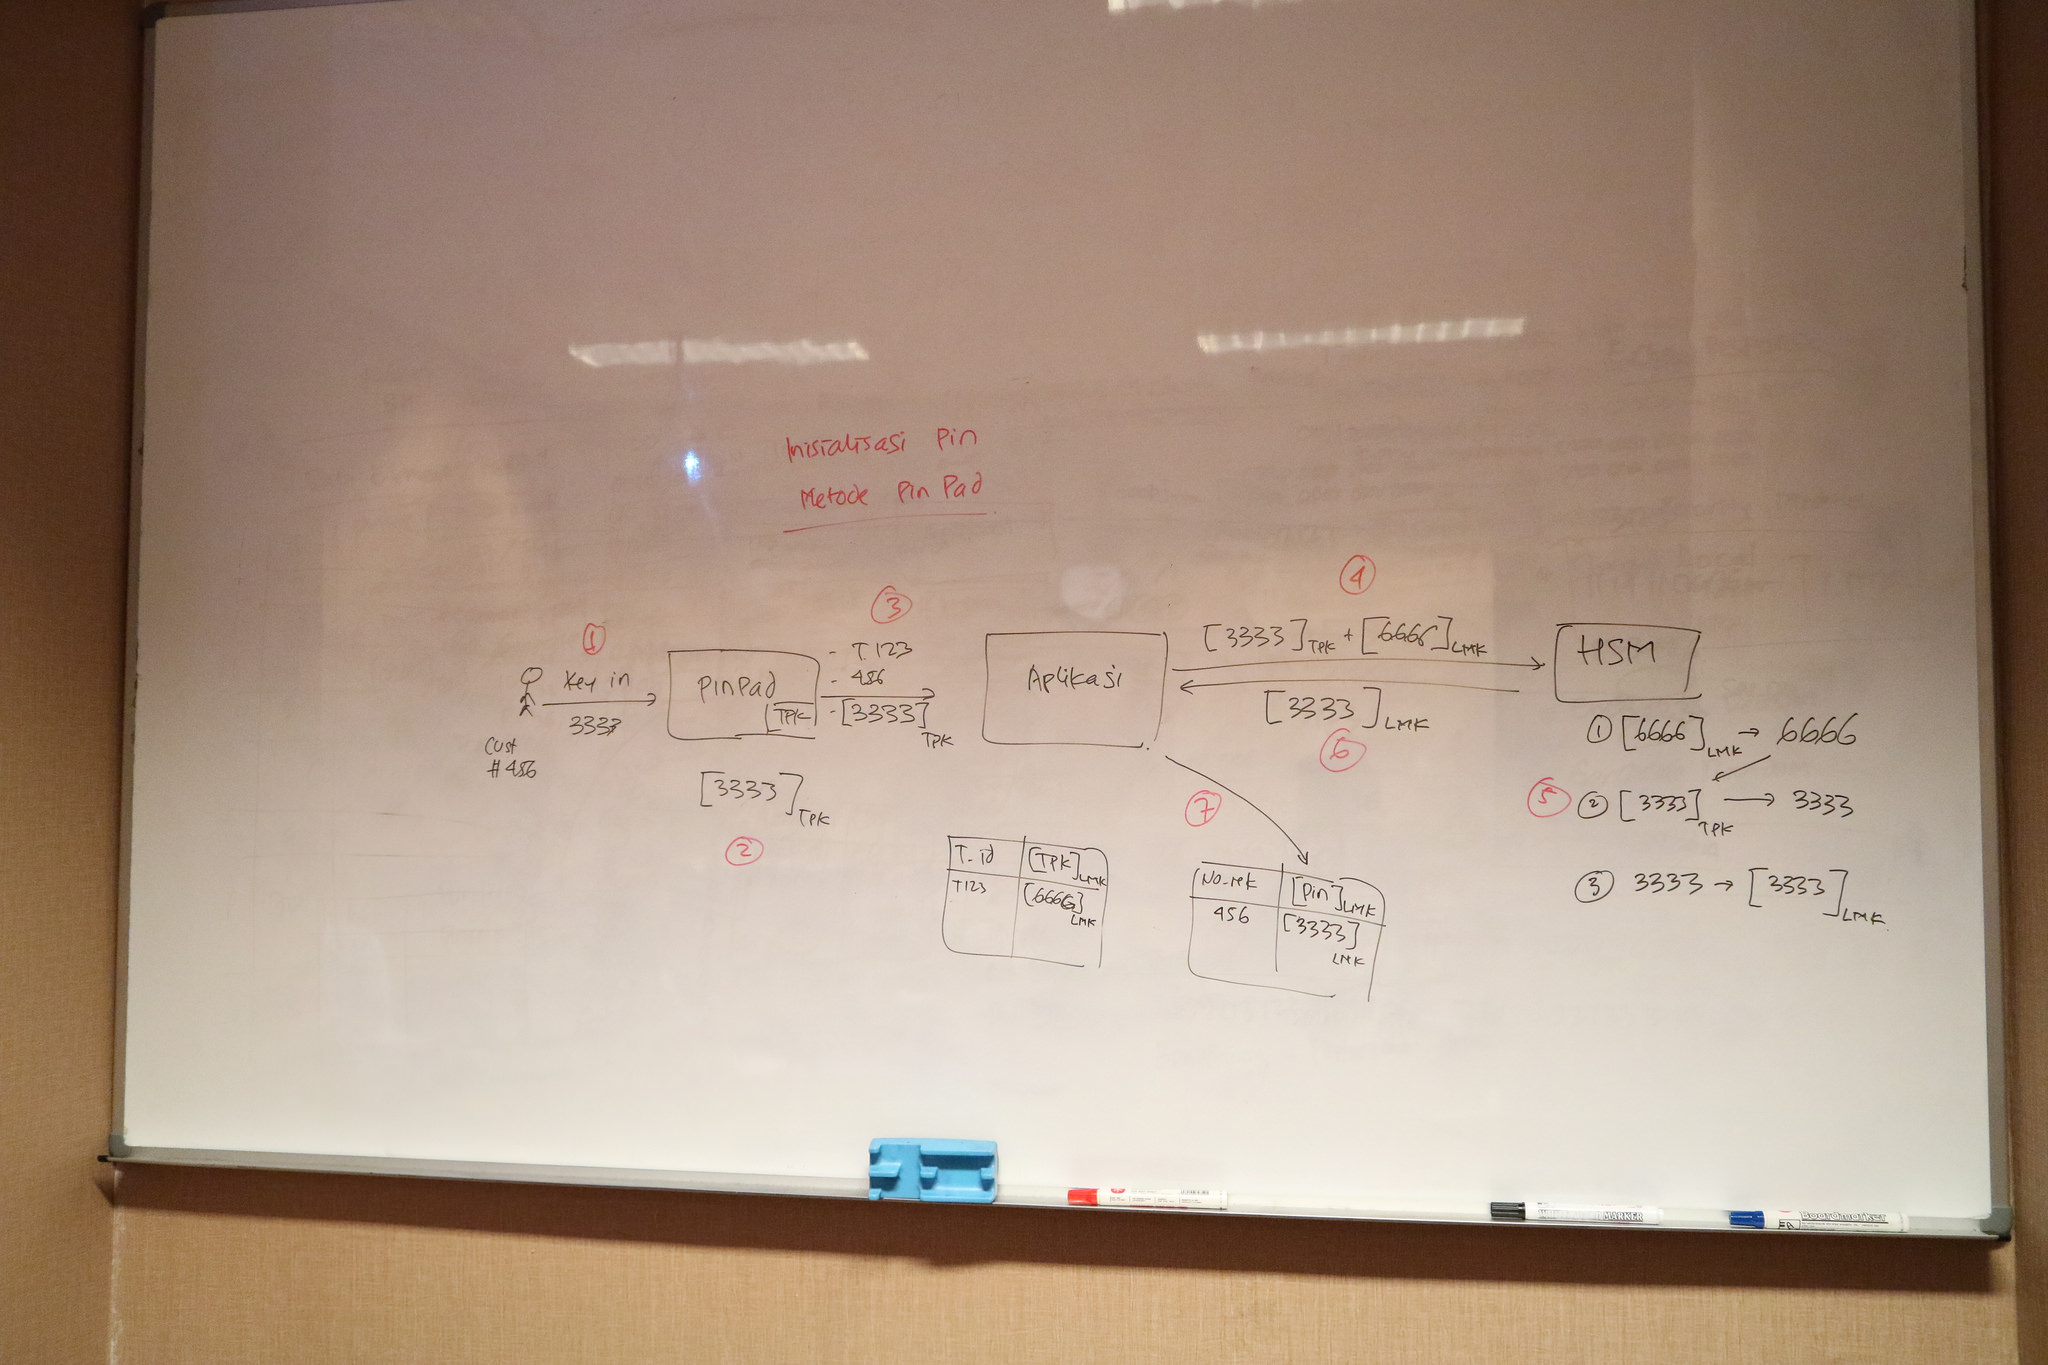 Inisialisasi Pin
Metode Pin Pad
1
Key in
3333
Cust
#456
PinPad
TPK
[3333]TPK
2
3
- T123
- 456
- [3333]TPK
Aplikasi
4
[3333]TPK + [6666]LMK
[3333]LMK
6
HSM
1 [6666]LMK → 6666
5
2 [3333]TPK → 3333
3 3333 → [3333]LMK
7
T_id [TPK]LMK
T123 [6666]LMK
No_rek [Pin]LMK
456 [3333]LMK
MARKER
Boardmarker